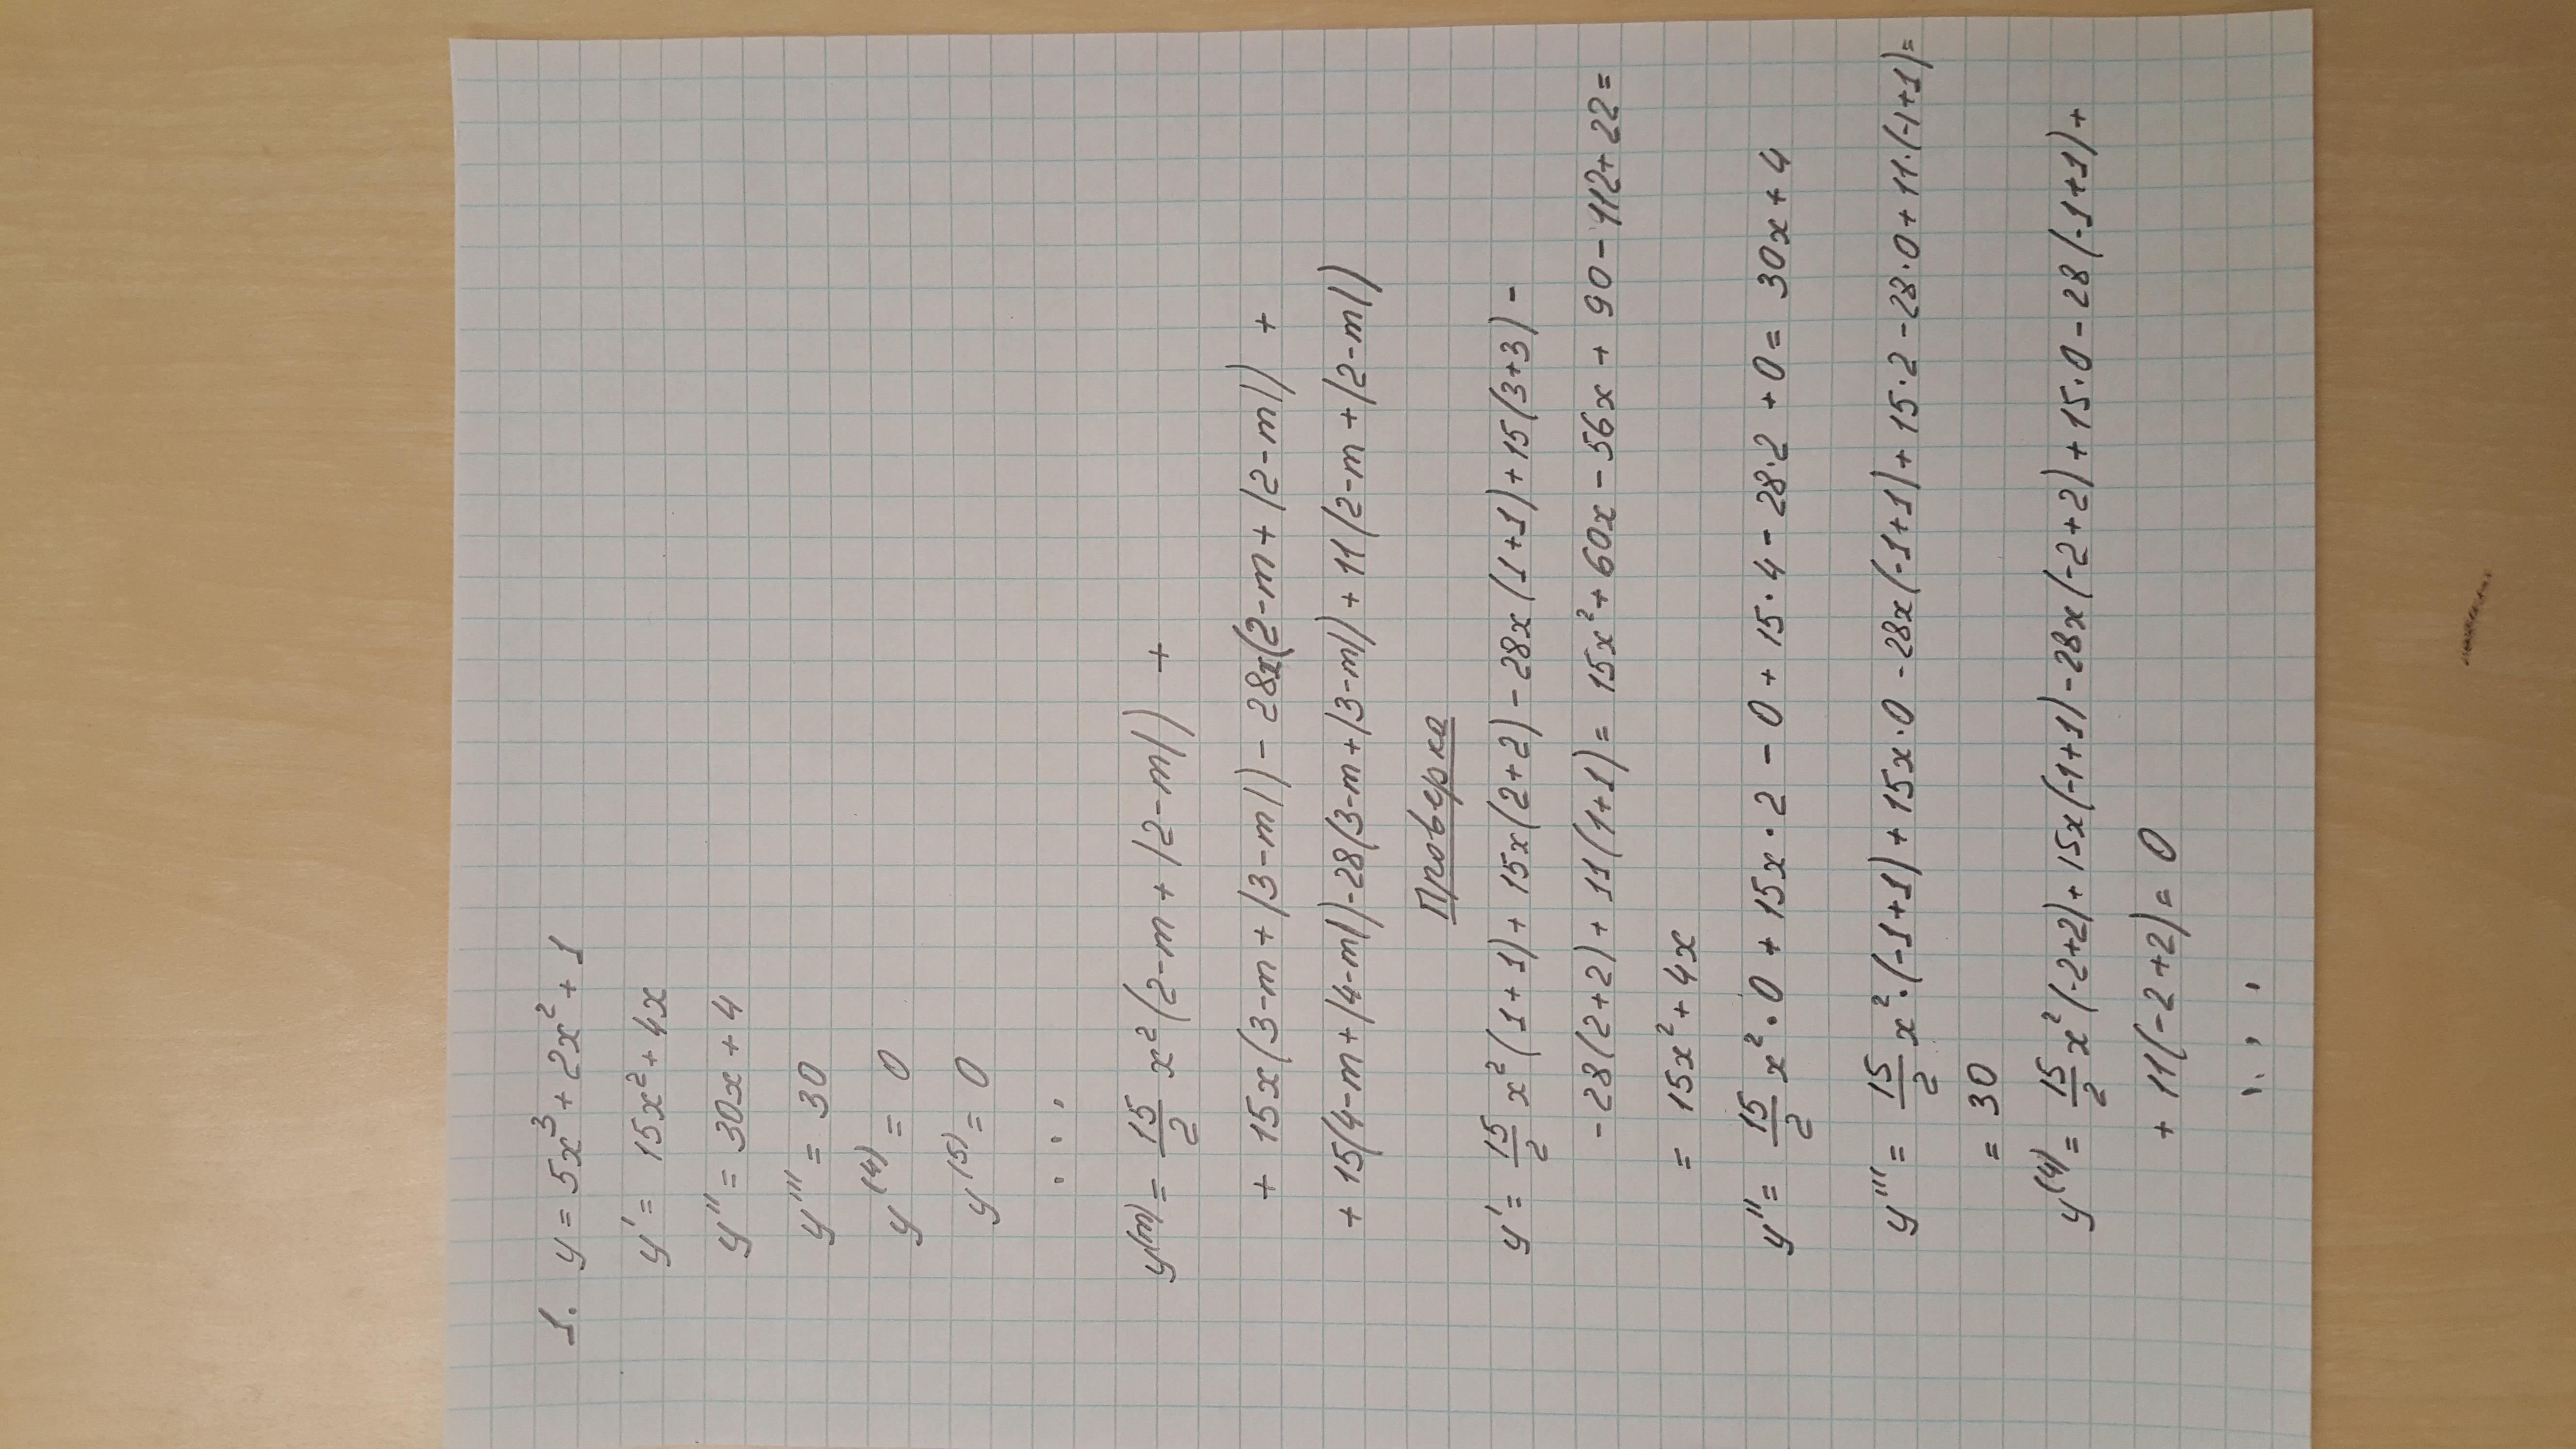 1. y = 5x³ + 2x² + 1
y' = 15x² + 4x
y'' = 30x + 4
y''' = 30
y⁽⁴⁾ = 0
y⁽⁵⁾ = 0
. . .
y⁽ᵐ⁾ = 15/2 x² (2-m + |2-m|) +
+ 15x (3-m + |3-m|) - 28x(2-m + |2-m|) +
+ 15(4-m + |4-m|)-28(3-m+|3-m|) + 11(2-m + |2-m|)
Проверка
y' = 15/2 x² (1+1) + 15x (2+2) - 28x (1+1) + 15(3+3) -
- 28(2+2) + 11(1+1) = 15x² + 60x - 56x + 90 - 112 + 22 =
= 15x² + 4x
y'' = 15/2 x² · 0 + 15x · 2 - 0 + 15 · 4 - 28·2 + 0 = 30x + 4
y''' = 15/2 x² · (-1+1) + 15x·0 - 28x(-1+1) + 15·2 - 28·0 + 11·(-1+1) =
= 30
y⁽⁴⁾ = 15/2 x² (-2+2) + 15x(-1+1) - 28x(-2+2) + 15·0 - 28(-1+1) +
+ 11(-2+2) = 0
. . .